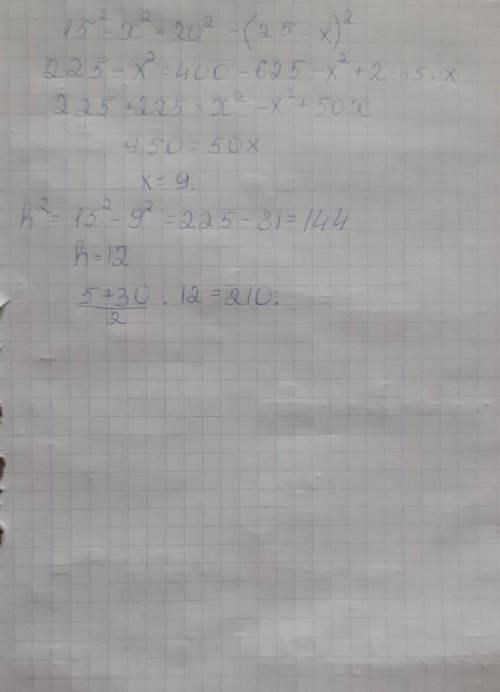 15² - x² = 20² - (25 - x)²
225 - x² = 400 - 625 - x² + 2·25·x
225 + 225 = x² - x² + 50x
450 = 50x
x = 9.
h² = 15² - 9² = 225 - 81 = 144
h = 12
(5+30)/2 · 12 = 210.